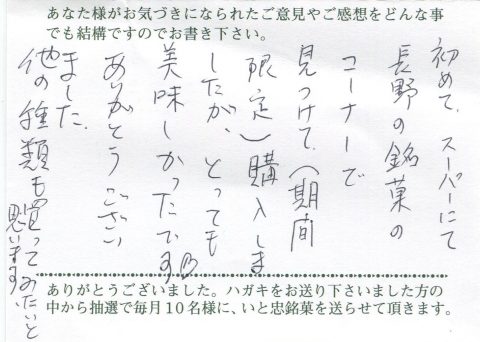 あなた様がお気づきになられたご意見やご感想をどんな事
でも結構ですのでお書き下さい。
初めて、スーパーにて
長野の銘菓の
コーナーで
見つけて、(期間
限定)購入しま
したが、とっても
美味しかったです
ありがとうござい
ました。
他の種類も買ってみたいと
思います。
ありがとうございました。ハガキをお送り下さいました方の
中から抽選で毎月10名様に、いと忠銘菓を送らせて頂きます。